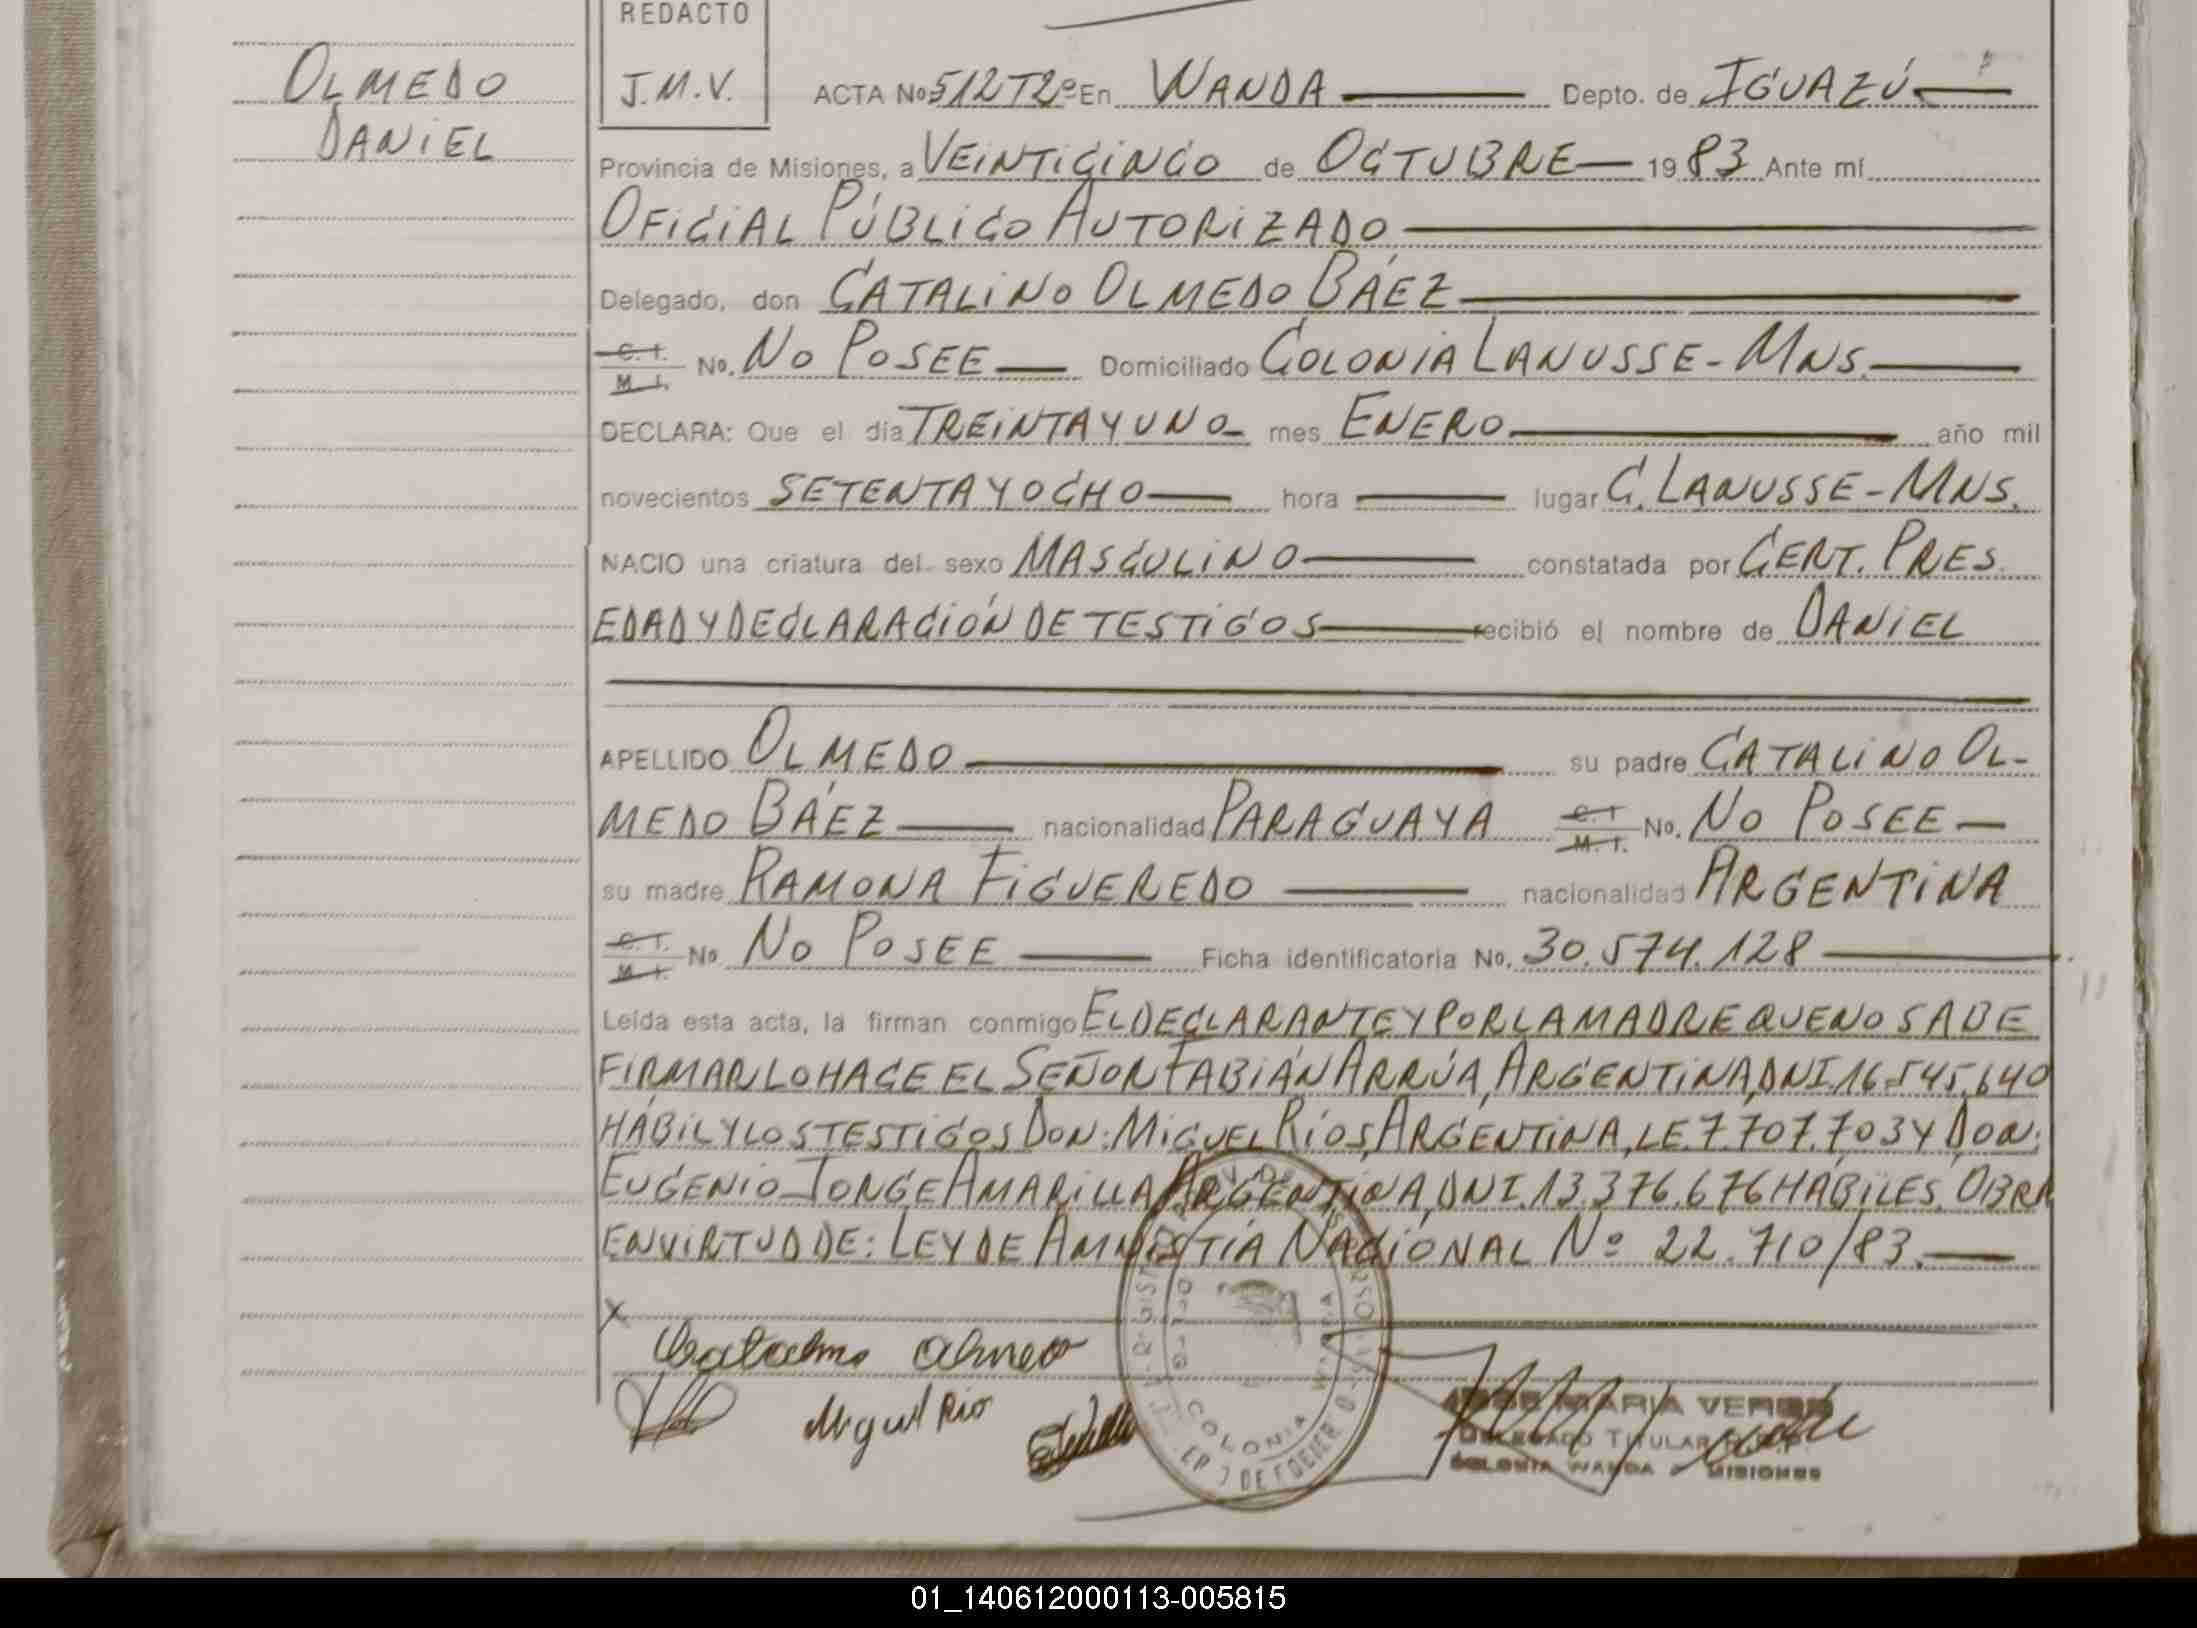 REDACTO
J.M.V.
OLMEDO
DANIEL
ACTA No 512 T2º En WANDA Depto. de IGUAZÚ
Provincia de Misiones, a VEINTICINCO de OCTUBRE 1983 Ante mí
OFICIAL PÚBLICO AUTORIZADO
Delegado, don CATALINO OLMEDO BÁEZ
C. I. M. I. No. NO POSEE Domiciliado COLONIA LANUSSE - MNS.
DECLARA: Que el día TREINTA Y UNO mes ENERO año mil
novecientos SETENTA Y OCHO hora lugar C. LANUSSE - MNS.
NACIO una criatura del sexo MASCULINO constatada por CERT. PRES.
EDAD Y DECLARACIÓN DE TESTIGOS recibió el nombre de DANIEL
APELLIDO OLMEDO su padre CATALINO OL-
MEDO BÁEZ nacionalidad PARAGUAYA C. I M. I. No. NO POSEE
su madre RAMONA FIGUEREDO nacionalidad ARGENTINA
C. I. M. I. No NO POSEE Ficha identificatoria No. 30.574.128
Leída esta acta, la firman conmigo EL DECLARANTE Y POR LA MADRE QUE NO SABE
FIRMAR LO HACE EL SEÑOR FABIÁN ARRÚA, ARGENTINA, DNI. 16.545.640
HÁBIL Y LOS TESTIGOS DON: MIGUEL RÍOS, ARGENTINA, LE 7.707.703 Y DON:
EUGENIO JORGE AMARILLA ARGENTINA, DNI. 13.376.676 HÁBILES. OBRA
EN VIRTUD DE: LEY DE AMNISTÍA NACIONAL Nº 22.710/83.
X
Catalino Olmedo
Miguel Rio
COLONIA WANDA
JOSE MARIA VERON
DELEGADO TITULAR R.P.P.
COLONIA WANDA - MISIONES
01_140612000113-005815